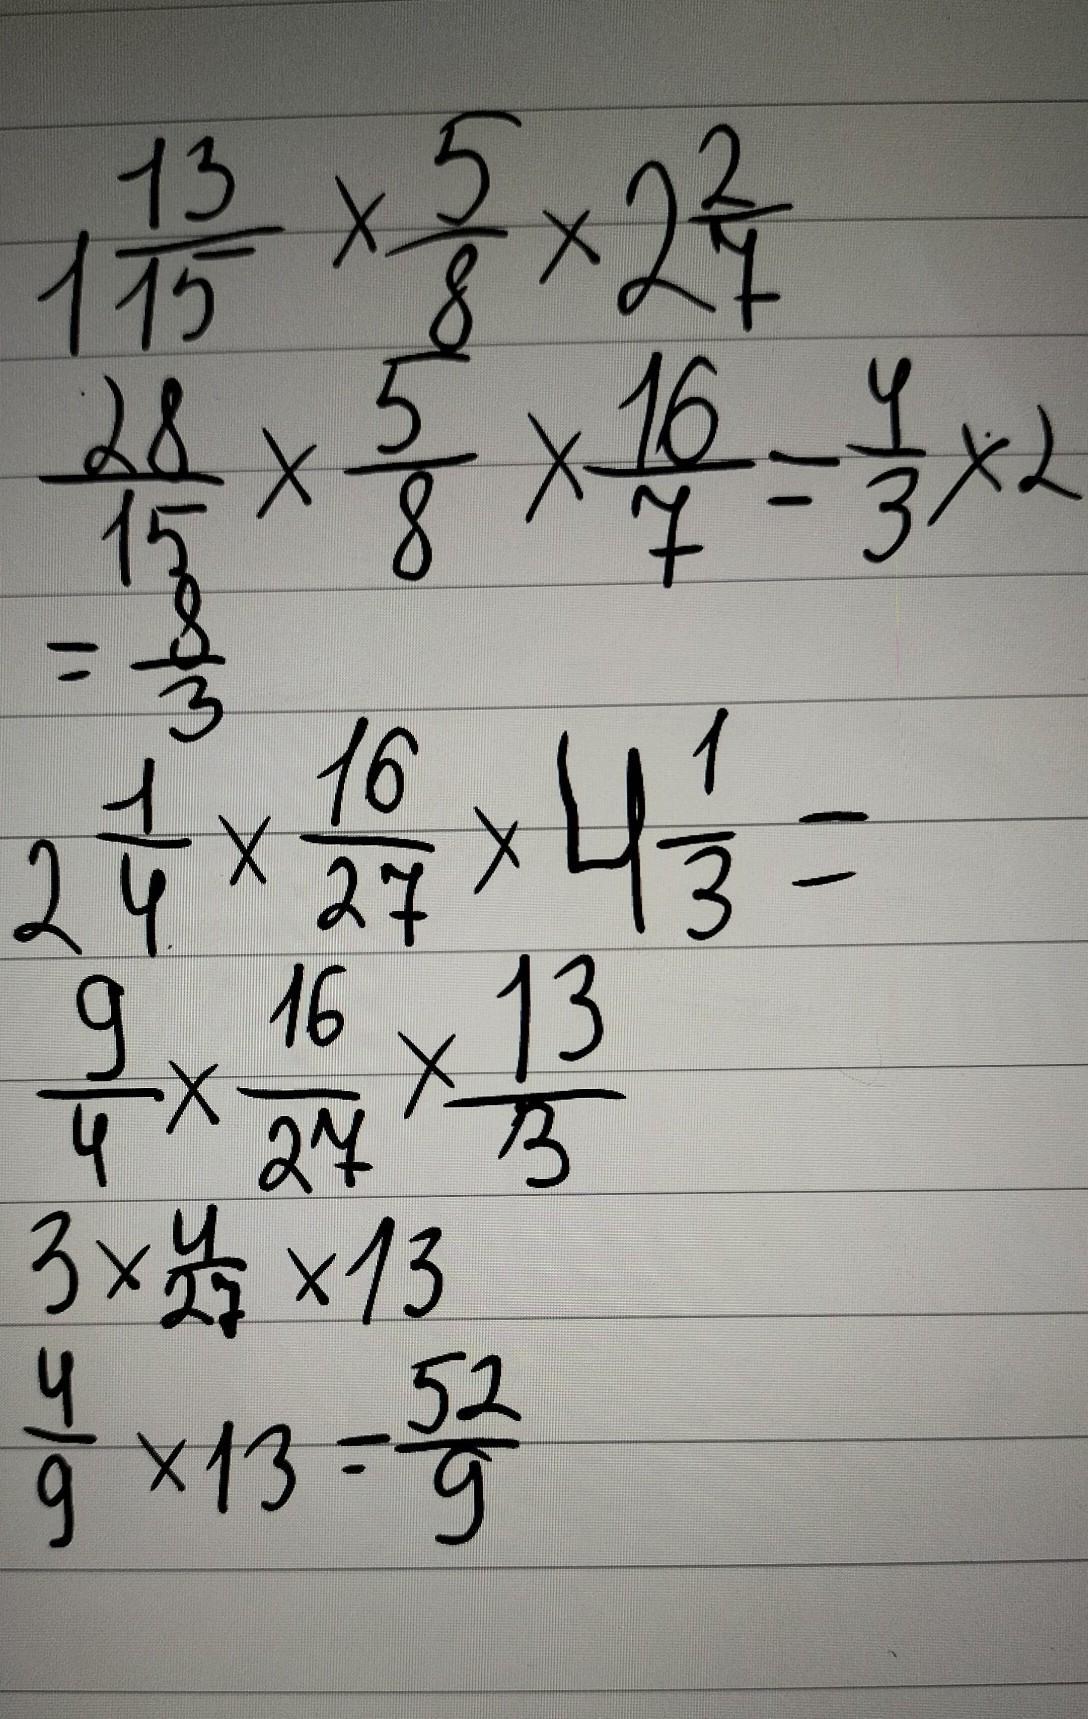 1 13/15 × 5/8 × 2 2/7
28/15 × 5/8 × 16/7 = 4/3 × 2
= 8/3
2 1/4 × 16/27 × 4 1/3 =
9/4 × 16/27 × 13/3
3 × 4/27 × 13
4/9 × 13 = 52/9